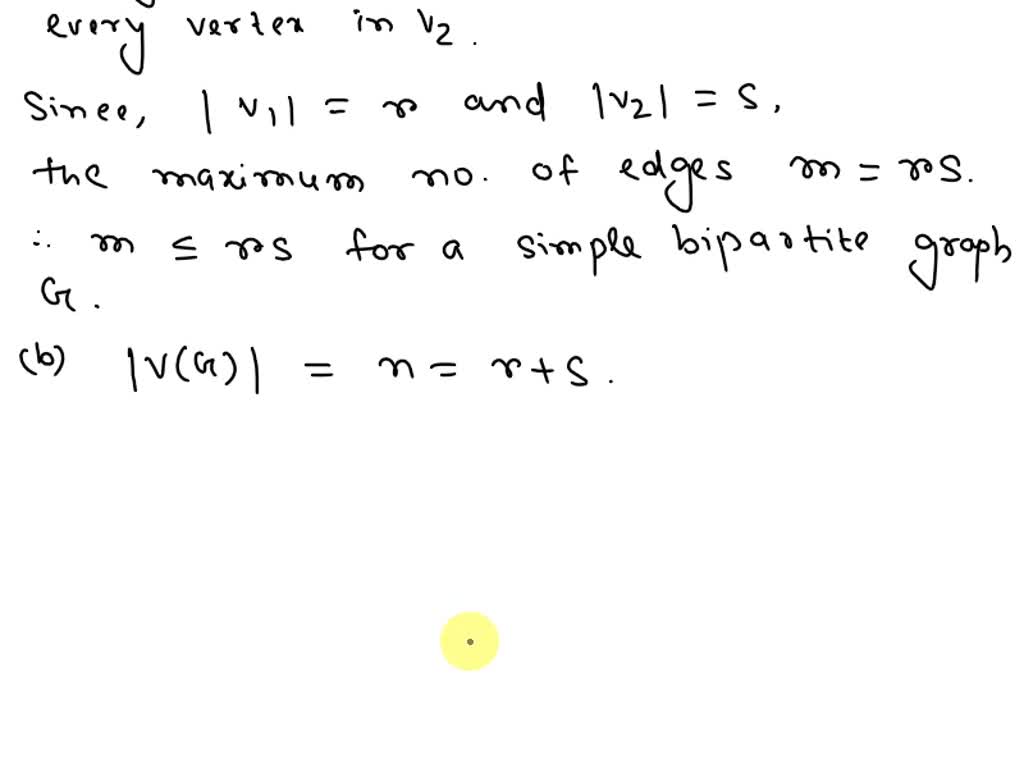 every vertex in V2.
Since, |V1| = r and |V2| = s,
the maximum no. of edges m = rs.
∴ m ≤ rs for a simple bipartite graph
G.
(b) |V(G)| = n = r+s.